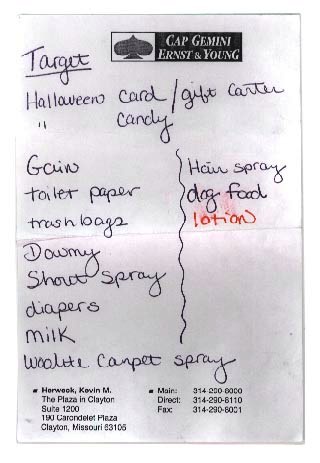 CAP GEMINI
ERNST & YOUNG
Target
Halloween card / gift Carter
" candy
Gain
toilet paper
trash bags
Downy
Shout spray
diapers
milk
Woolite Carpet spray
Hair spray
dog food
lotion
Herweck, Kevin M.
The Plaza in Clayton
Suite 1200
190 Carondelet Plaza
Clayton, Missouri 63105
Main: 314-290-8000
Direct: 314-290-8110
Fax: 314-290-8001